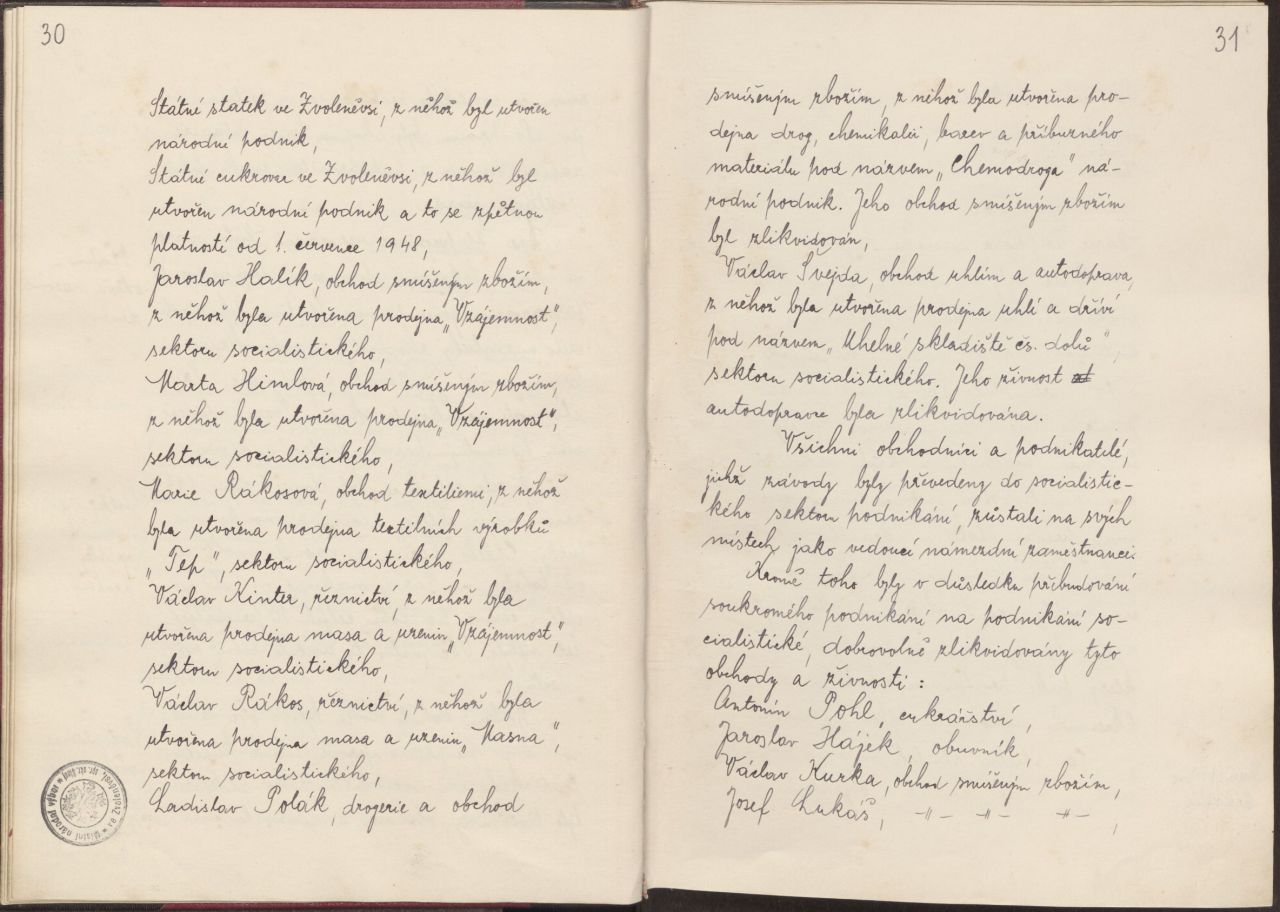 30
Státní statek ve Zvoleněvsi, z něhož byl utvořen
národní podnik,
Státní cukrovar ve Zvoleněvsi, z něhož byl
utvořen národní podnik a to se zpětnou
platností od 1. července 1948,
Jaroslav Halík, obchod smíšeným zbožím,
z něhož byla utvořena prodejna „Vzájemnost",
sektoru socialistického,
Marta Himlová, obchod smíšeným zbožím,
z něhož byla utvořena prodejna „Vzájemnost",
sektoru socialistického,
Marie Rákosová, obchod textiliemi, z něhož
byla utvořena prodejna textilních výrobků
„Tep", sektoru socialistického,
Václav Kinter, řeznictví, z něhož byla
utvořena prodejna masa a uzenin „Vzájemnost",
sektoru socialistického,
Václav Rákos, řeznictví, z něhož byla
utvořena prodejna masa a uzenin „Masna",
sektoru socialistického,
Ladislav Polák, drogerie a obchod
Místní národní výbor ve Zvoleněvsi
31
smíšeným zbožím, z něhož byla utvořena pro-
dejna drog, chemikalií, barev a příbuzného
materiálu pod názvem „Chemodroga" ná-
rodní podnik. Jeho obchod smíšeným zbožím
byl zlikvidován,
Václav Švejda, obchod uhlím a autodoprava,
z něhož byla utvořena prodejna uhlí a dříví
pod názvem „Uhelné skladiště čs. dolů",
sektoru socialistického. Jeho živnost at
autodopravce byla zlikvidována.
Všichni obchodníci a podnikatelé,
jichž závody byly převedeny do socialistic-
kého sektoru podnikání, zůstali na svých
místech jako vedoucí námezdní zaměstnanci.
Kromě toho byly v důsledku přibudování
soukromého podnikání na podnikání so-
cialistické, dobrovolně zlikvidovány tyto
obchody a živnosti :
Antonín Pohl, cukrářství,
Jaroslav Hájek, obuvník,
Václav Kurka, obchod smíšeným zbožím,
Josef Lukáš, -"- -"- -"- ,